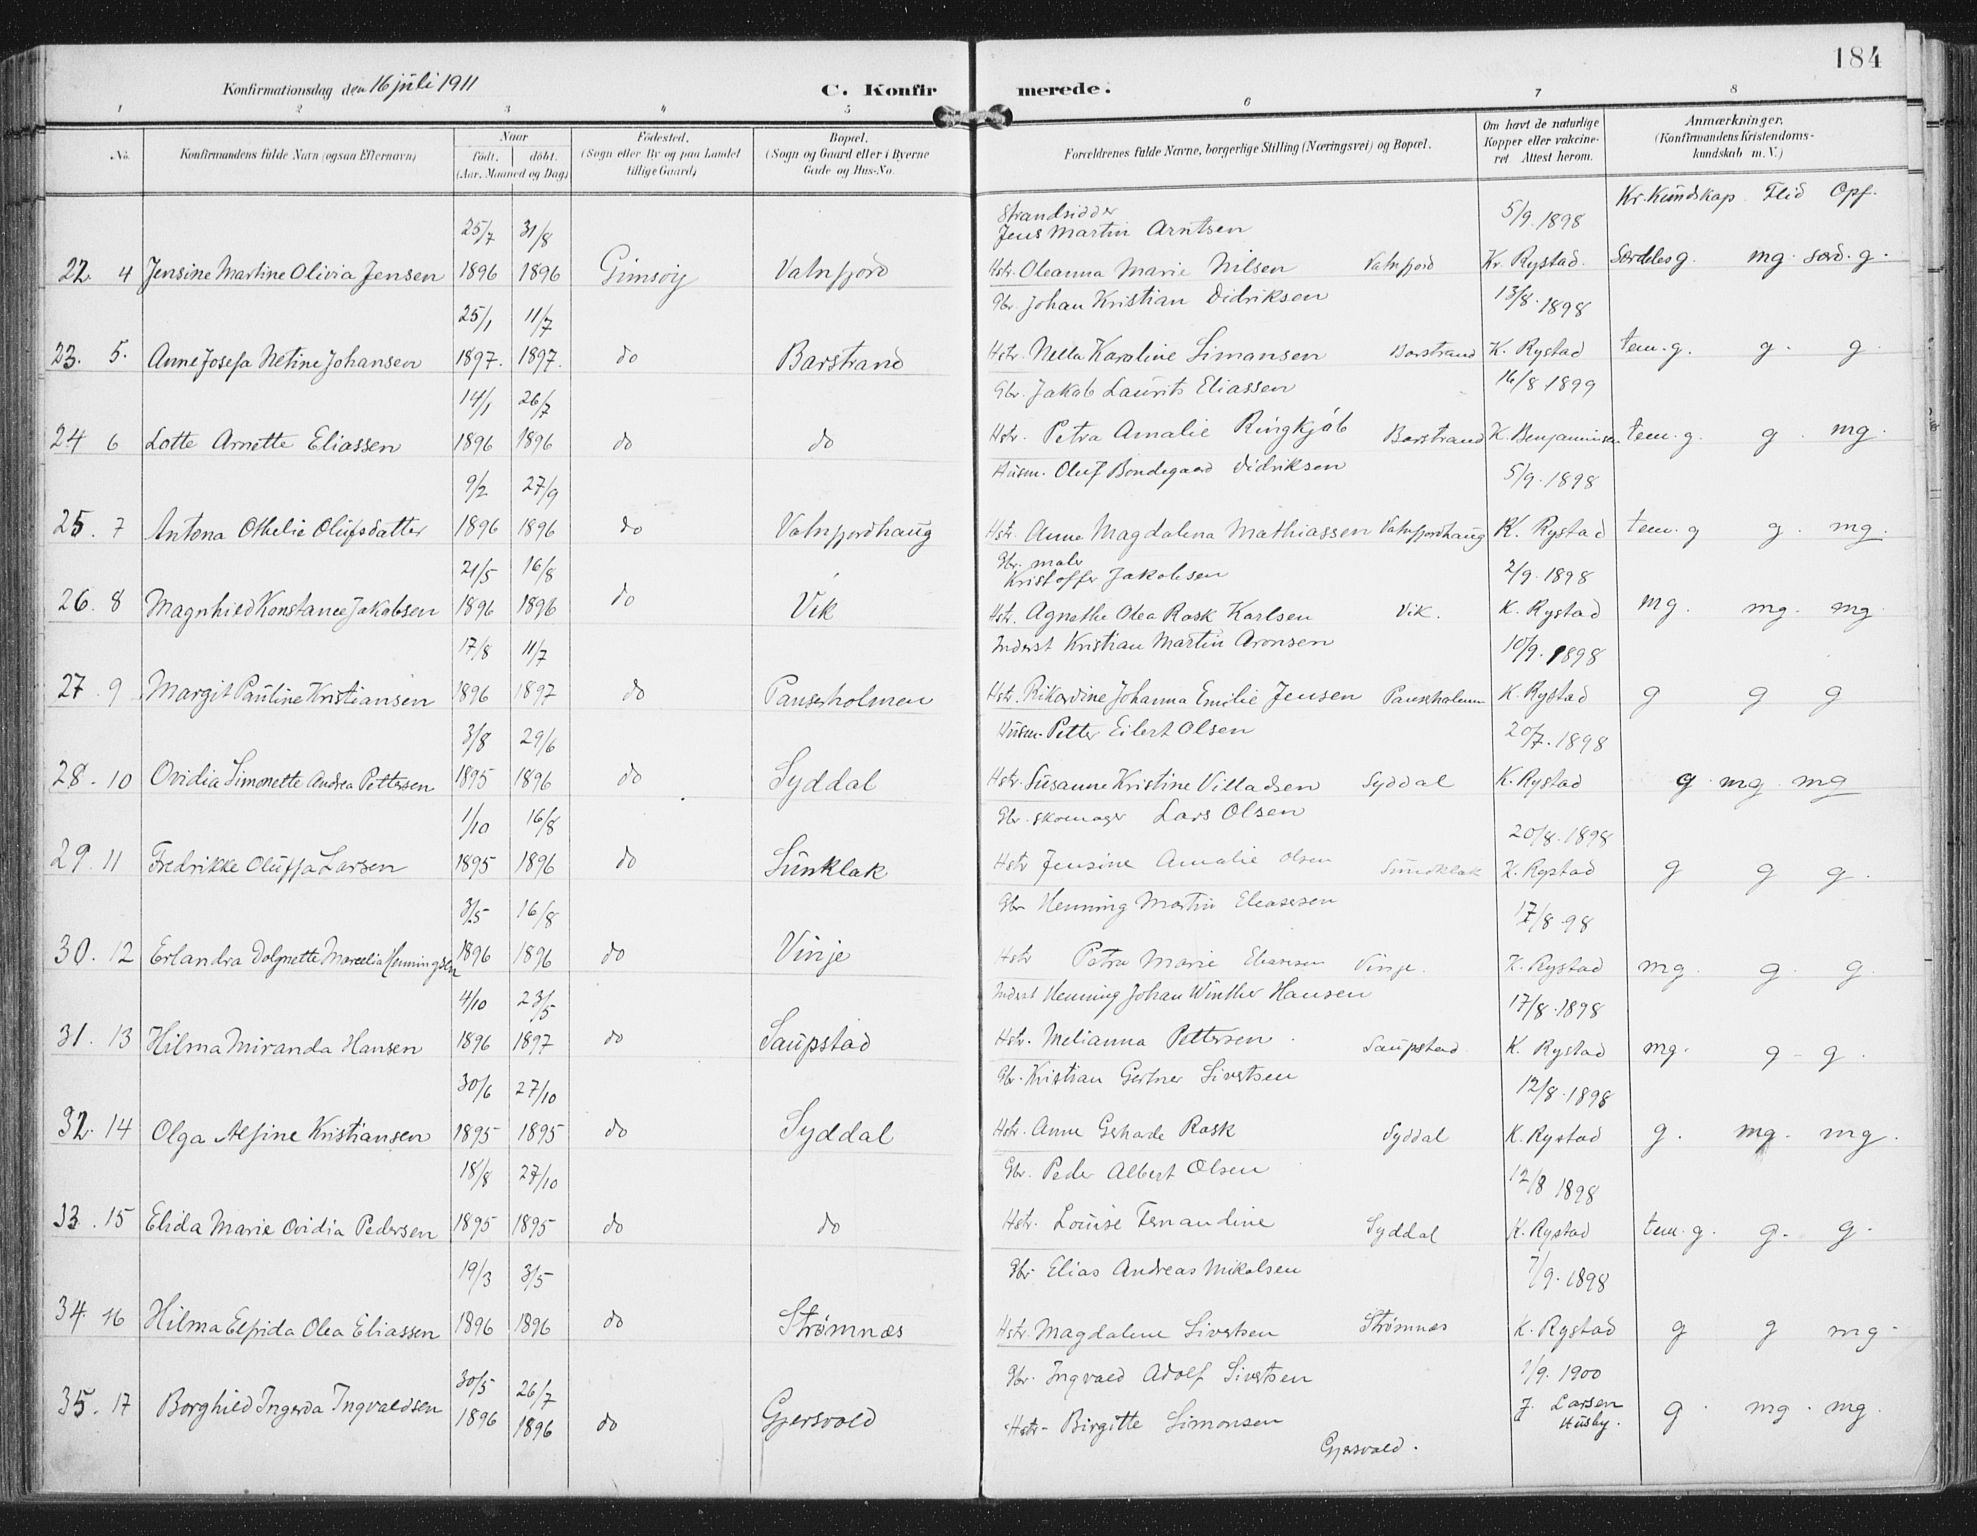 184
Konfirmationsdag den 16 juli 1911
C. Konfirmerede.
1 2 3 4 5 6 7 8
No.
Konfirmandens fulde Navn (ogsaa Efternavn)
Naar
födt. döbt.
(Aar, Maaned og Dag)
Födested.
(Sogn eller By og paa Landet
tillige Gaard)
Bopæl.
(Sogn og Gaard eller i Byerne
Gade og Hus-No.
Forældrenes fulde Navne, borgerlige Stilling (Næringsvei) og Bopæl.
Om havt de naturlige
Kopper eller vakcine-
ret. Attest herom.
Anmærkninger.
(Konfirmandens Kristendoms-
kundskab m. V.)
Kr. Kundskap Flid Opf.
25/7 31/8 Strandsidder Jens Martin Arntsen 5/9 1898
22. 4 Jensine Martine Olivia Jensen 1896 1896 Gimsöy Vatnfjord Hstr. Oleanna Marie Nilsen Vatnfjord Kr. Rystad Særdeles g. mg. særd. g.
25/1 11/7 Gbr. Johan Kristian Didriksen 13/8 1898
23. 5. Anne Josefa Netine Johansen 1897. 1897. do Barstrand Hstr. Nella Karoline Simonsen Barstrand K. Rystad tem. g. g. g
14/1 26/7 Gbr. Jakob Laurits Eliassen 16/8 1899
24 6 Lotte Arnette Eliassen 1896 1896 do do Hstr. Petra Amalie Ringkjöb Barstrand K. Benjaminsen tem. g. g. mg.
9/2 27/9 Husm. Oluf Bondegaard Didriksen 5/9 1898
25. 7 Antona Othelie Olufsdatter 1896 1896 do Vatnfjordhaug Hstr. Anna Magdalena Mathiassen Vatnfjordhaug K. Rystad tem. g g. mg.
21/5 16/8 Gbr. maler Kristoffer Jakobsen 2/9 1898
26. 8 Magnhild Konstance Jakobsen 1896 1896 do Vik Hstr. Agnethe Olea Rask Karlsen Vik. K. Rystad mg. mg. mg.
17/8 11/7 Inderst Kristian Martin Aronsen 10/9. 1898
27. 9 Margit Pauline Kristiansen 1896 1897 do Pauserholmen Hstr. Rikardine Johanna Emilie Jensen Pauserholmen K. Rystad g g g
3/8 29/6 Husm. Petter Eilert Olsen 20/7. 1898
28. 10 Ovidia Simonette Andrea Pettersen 1895 1896 do Syddal Hstr. Susanne Kristine Villadsen Syddal K. Rystad g. mg. mg
1/10 16/8 Gbr. skomager Lars Olsen 20/8. 1898
29. 11 Fredrikke Oluffa Larsen 1895 1896 do Sunklak Hstr Jensine Amalie Olsen Sundklak K. Rystad g g g.
3/5 16/8 Gbr Henning Martin Eliassen 17/8 98
30. 12 Erlandra Dolgnette Marcelia Henningsen 1896 1896 do Vinje Hstr Petra Marie Eliassen Vinje. K. Rystad mg. g. g.
4/10 23/5 Inderst Henning Johan Winther Hansen 17/8. 1898
31. 13 Hilma Miranda Hansen 1896 1897 do Saupstad Hstr. Melianna Pettersen Saupstad K. Rystad mg. g - g.
30/6 27/10 Gbr. Kristian Gertner Sivertsen 12/8. 1898
32. 14 Olga Alfine Kristiansen 1895 1895 do Syddal Hstr. Anne Gerharde Rask Syddal K. Rystad g. mg. mg.
18/8 27/10 Gbr. Peder Albert Olsen 12/8 1898
33. 15 Elida Marie Ovidia Pedersen 1895 1895 do do Hstr. Louise Fernandine Syddal K. Rystad tem. g. g. g.
19/3 3/5 Gbr. Elias Andreas Mikalsen 7/9. 1898
34. 16 Hilma Elfrida Olea Eliassen 1896 1896 do Strømnæs Hstr. Magdalene Sivertsen Strømnæs K. Rystad g g mg.
30/5 26/7 Gbr. Ingvald Adolf Sivertsen 1/9. 1900
35. 17 Borghild Ingerda Ingvaldsen 1896 1896 do Gjersvold Hstr. Birgitte Simonsen J. Larsen Husby. g. mg. mg.
Gjersvold.